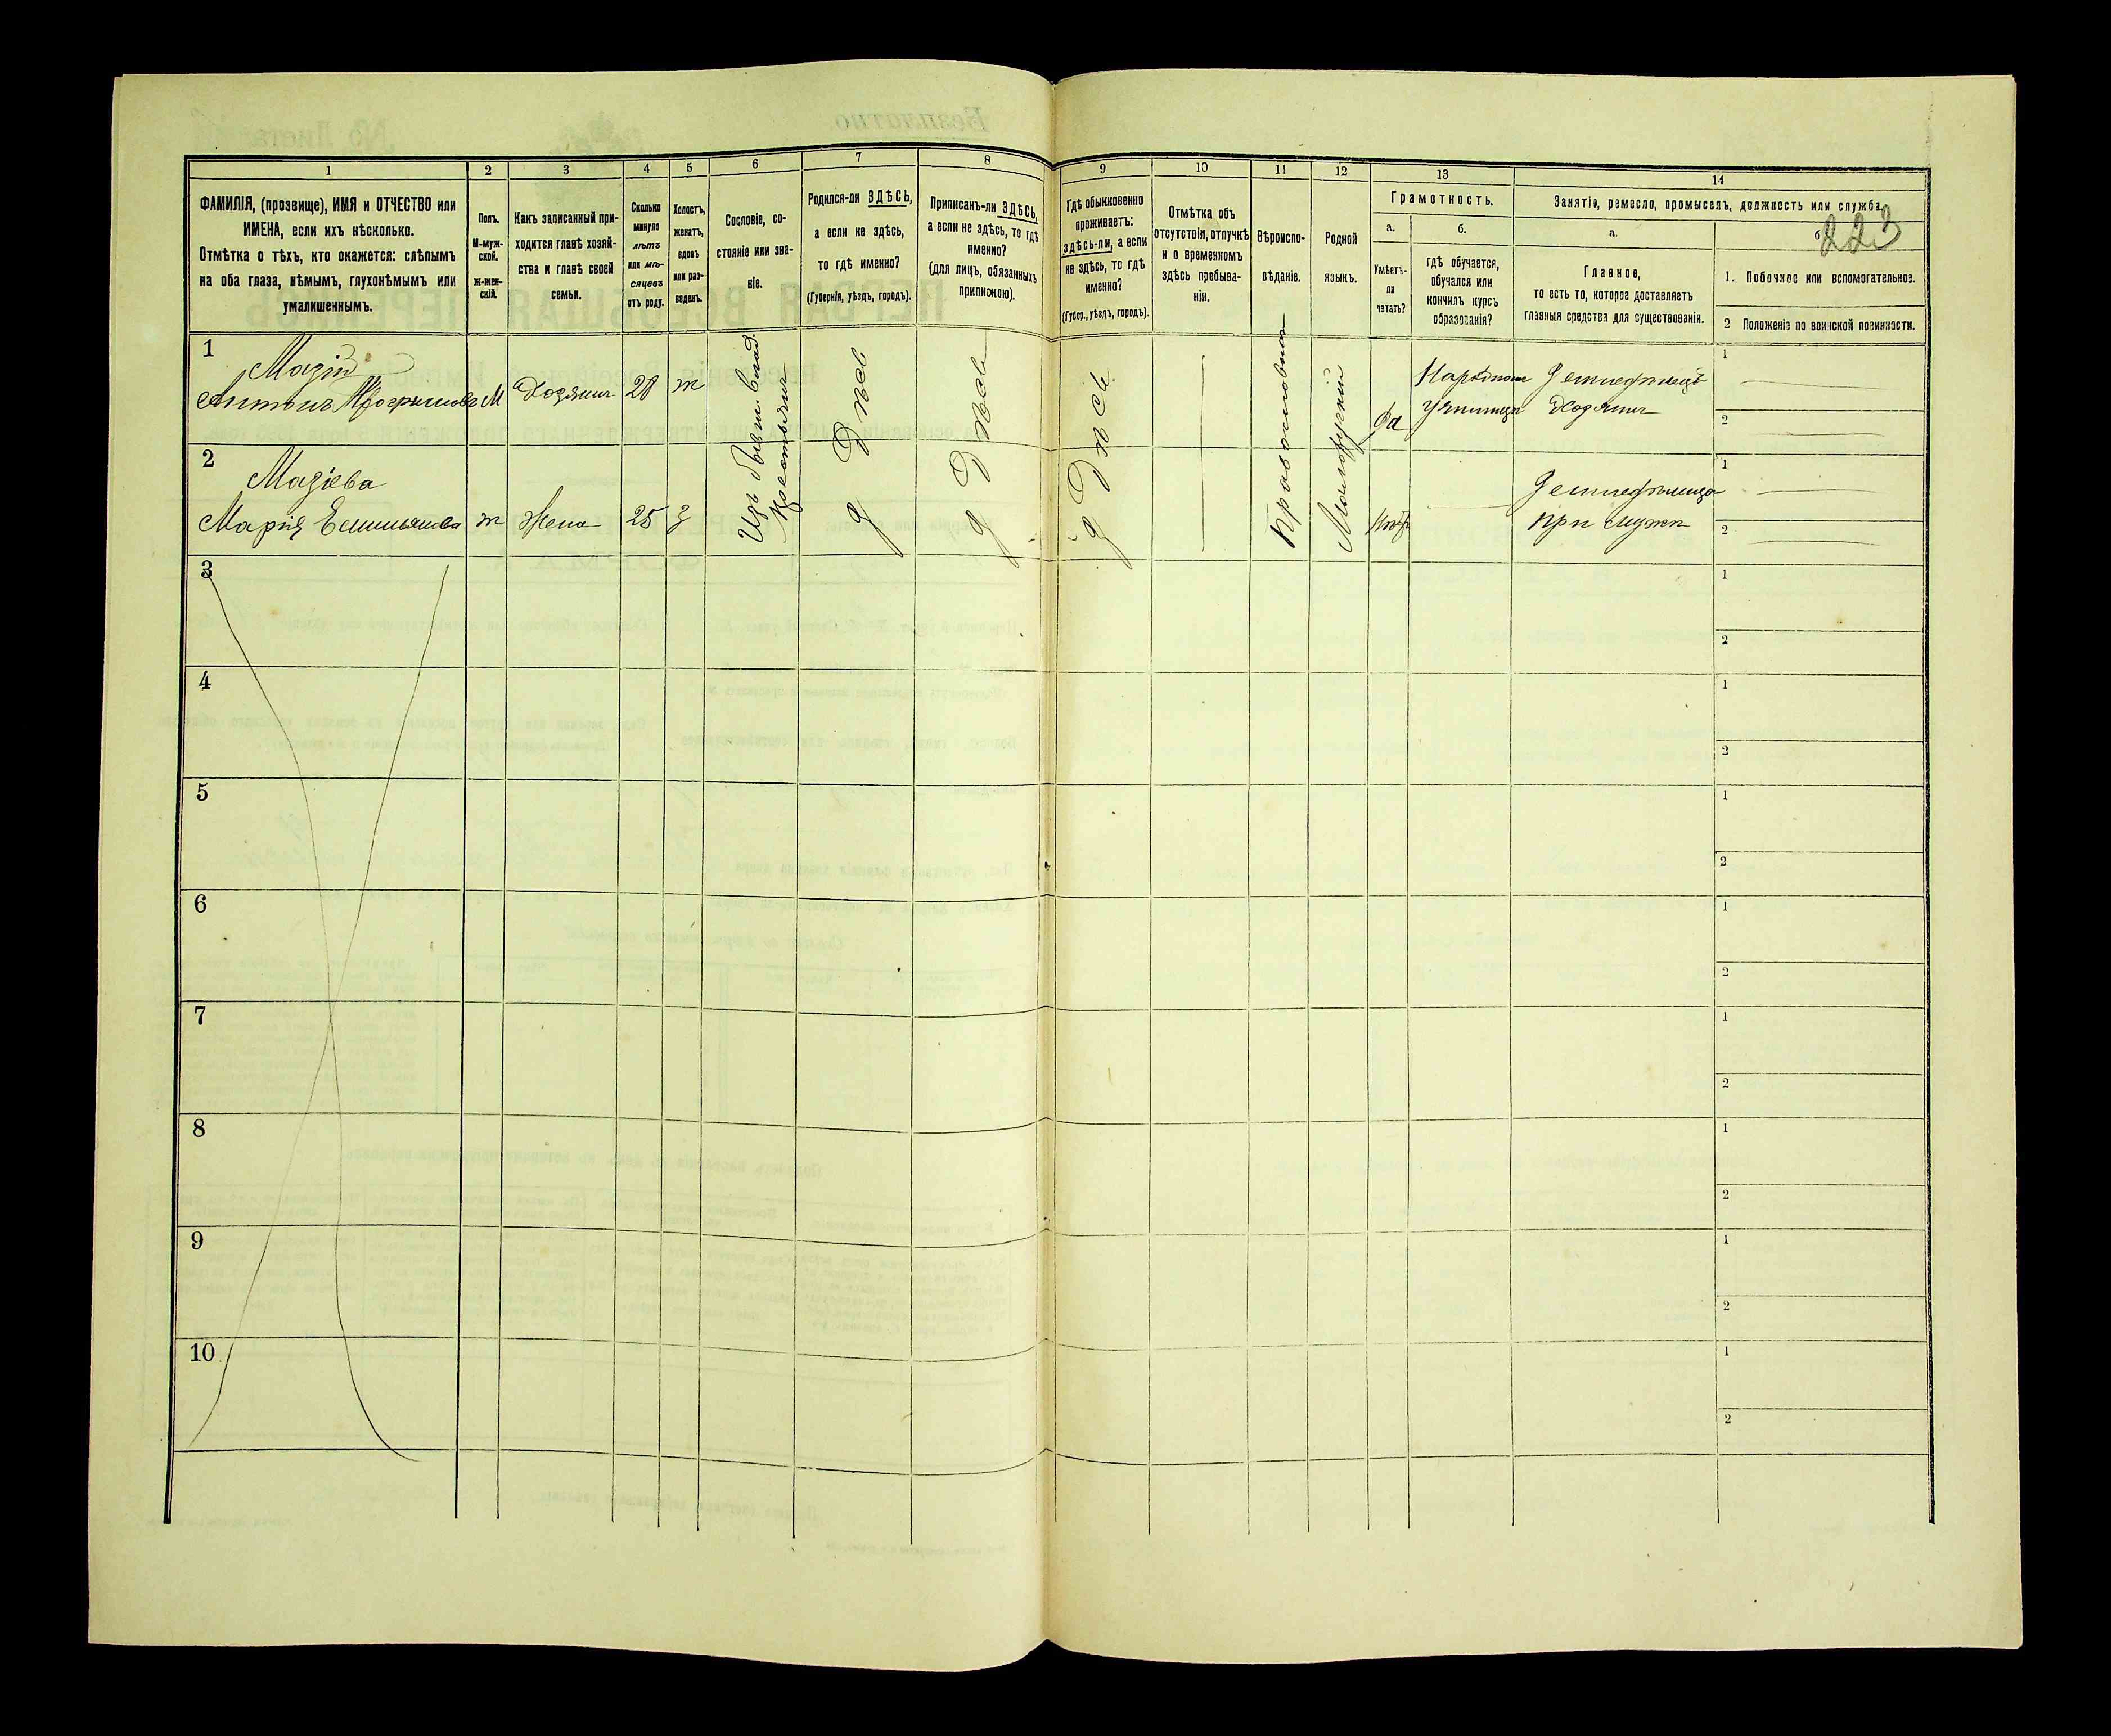 1
2
3
4
5
6
7
8
9
10
11
12
13
14
ФАМИЛІЯ, (прозвище), ИМЯ и ОТЧЕСТВО или
ИМЕНА, если ихъ нѣсколько.
Отмѣтка о тѣхъ, кто окажется: слѣпымъ
на оба глаза, нѣмымъ, глухонѣмымъ или
умалишеннымъ.
Полъ.
М-муж-
ской.
ж-жен-
скій.
Какъ записанный при-
ходится главѣ хозяй-
ства и главѣ своей
семьи.
Сколько
минуло
лѣтъ
или мѣ-
сяцевъ
отъ роду.
Холостъ,
женатъ,
вдовъ
или раз-
веденъ.
Сословіе, со-
стояніе или зва-
ніе.
Родился-ли ЗДѢСЬ,
а если не здѣсь,
то гдѣ именно?
(Губернія, уѣздъ, городъ).
Приписанъ-ли ЗДѢСЬ,
а если не здѣсь, то гдѣ
именно?
(для лицъ, обязанныхъ
припискою).
Гдѣ обыкновенно
проживаетъ:
здѣсь-ли, а если
не здѣсь, то гдѣ
именно?
(Губер., уѣздъ, городъ).
Отмѣтка объ
отсутствіи, отлучкѣ
и о временномъ
здѣсь пребыва-
ніи.
Вѣроиспо-
вѣданіе.
Родной
языкъ.
Грамотность.
а.
б.
Умѣетъ-
ли
читать?
гдѣ обучается,
обучался или
кончилъ курсъ
образованія?
Занятіе, ремесло, промыселъ, должность или служба.
223
а.
б
Главное,
то есть то, которое доставляетъ
главныя средства для существованія.
1. Побочное или вспомогательное.
2 Положеніе по воинской повинности.
1
Мазій
Антонъ
М
Хозяинъ
28
ж
Изъ бывш. влад.
крестьянъ
Здѣсь
Здѣсь
Здѣсь
Православное
Малорусскій
Да
Народномъ
училищѣ
Земледѣлецъ
Хозяинъ
1
2
2
Мазіева
Марія Емильянова
ж
Жена
25
З
Нѣтъ
Земледѣлица
при мужѣ
1
2
3
1
2
4
1
2
5
1
2
6
1
2
7
1
2
8
1
2
9
1
2
10
1
2